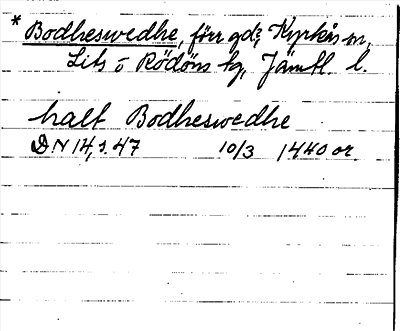 * Bodheswedhe, förr gd?, Kyrkås sn,
Lits o Rödöns tg, Jämtl. l.
halt Bodheswedhe
DN 14, s. 47 10/3 1440 or.